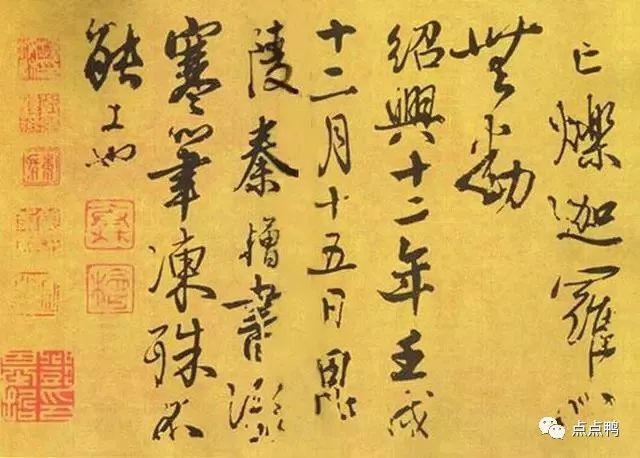 亡爍迦羅心
無動
紹興十二年壬戌
十二月十五日
陵秦憎書
寒筆凍殊不
能工也
点点鸭